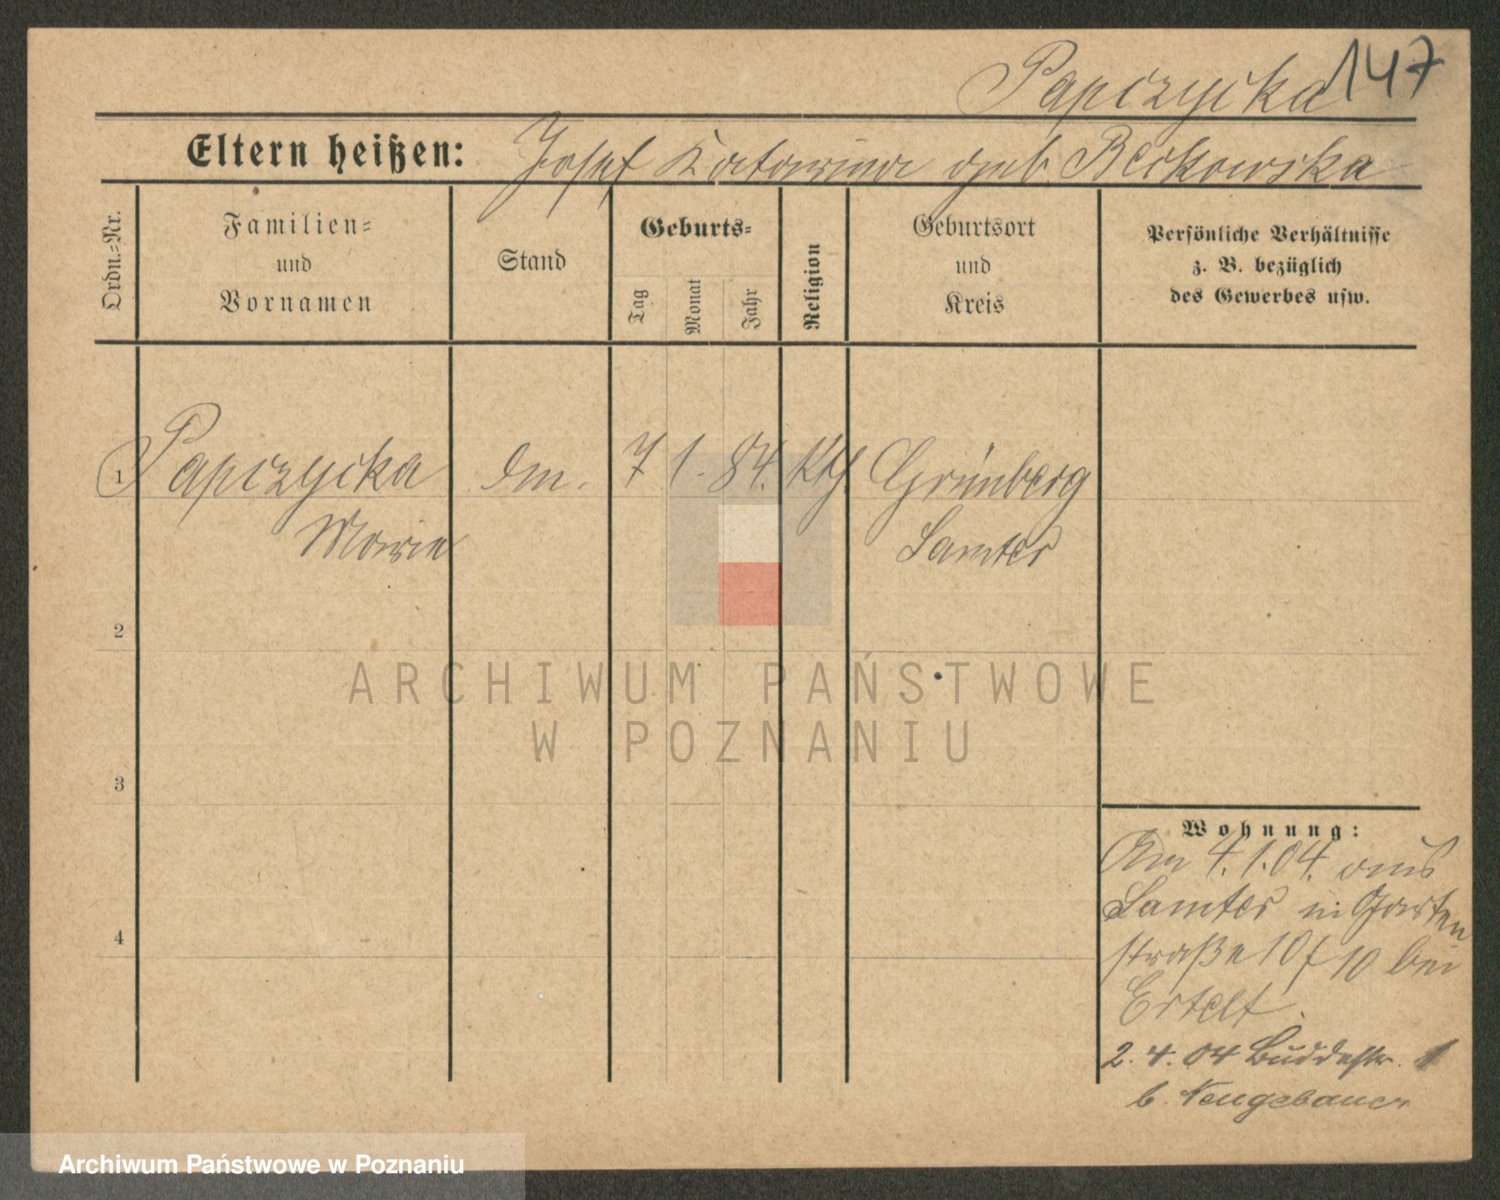 Papczycka 147
Eltern heißen: Josef Katarina geb. Beikowska
Ordn.=Nr.
Familien=
und
Vornamen
Stand
Geburts=
Tag
Monat
Jahr
Religion
Geburtsort
und
Kreis
Persönliche Verhältnisse
z. B. bezüglich
des Gewerbes usw.
1 Papczycka Dm. 7 1. 84. Kth. Grünberg
Marie Samter
2
ARCHIWUM PAŃSTWOWE
W POZNANIU
3
Wohnung:
Am 4.1.04. aus
Samter in Garten
straße 10 f 10 bei
Ertelt.
4
2.4.04 Buddestr. 1
b. Neugebauer
Archiwum Państwowe w Poznaniu